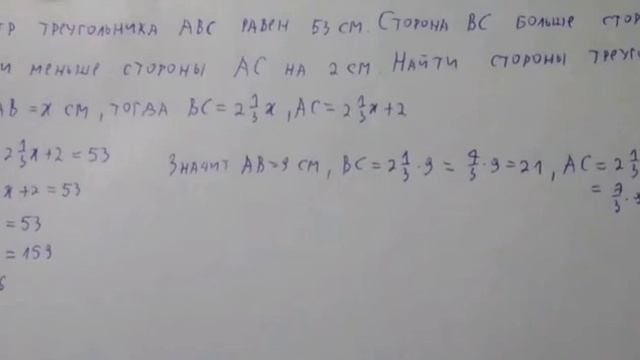 ТР ТРЕУГОЛЬНИКА ABC РАВЕН 53 СМ. СТОРОНА BC БОЛЬШЕ СТОР
И МЕНЬШЕ СТОРОНЫ AC НА 2 СМ. НАЙТИ СТОРОНЫ ТРЕУГО
AB = x СМ, ТОГДА BC = 2 1/3 x, AC = 2 1/3 x + 2
2 1/3 x + 2 = 53
x + 2 = 53
= 53
= 159
ЗНАЧИТ AB = 9 СМ, BC = 2 1/3 · 9 = 7/3 · 9 = 21, AC = 2 1/3
= 7/3 ·